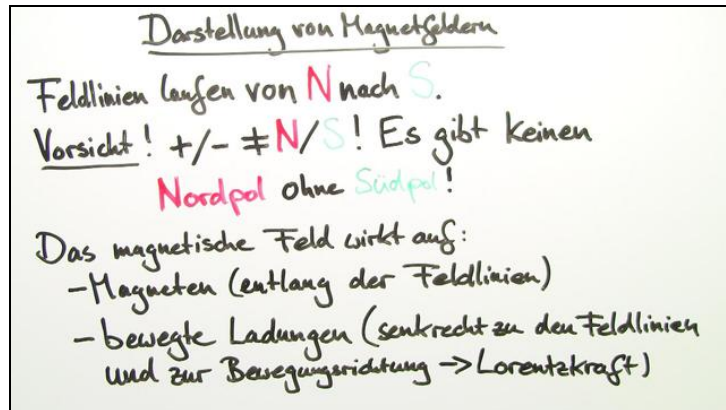 Darstellung von Magnetfeldern
Feldlinien laufen von N nach S.
Vorsicht! +/- ≠ N/S! Es gibt keinen
Nordpol ohne Südpol!
Das magnetische Feld wirkt auf:
-Magneten (entlang der Feldlinien)
-bewegte Ladungen (senkrecht zu den Feldlinien
und zur Bewegungsrichtung -> Lorentzkraft)